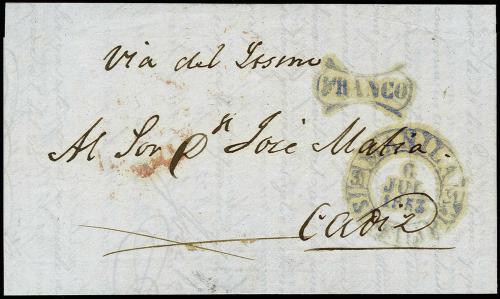 Via del Istmo
FRANCO
Al Sor Dn José Matia
MANILA
6
JUL
1853
Cadiz